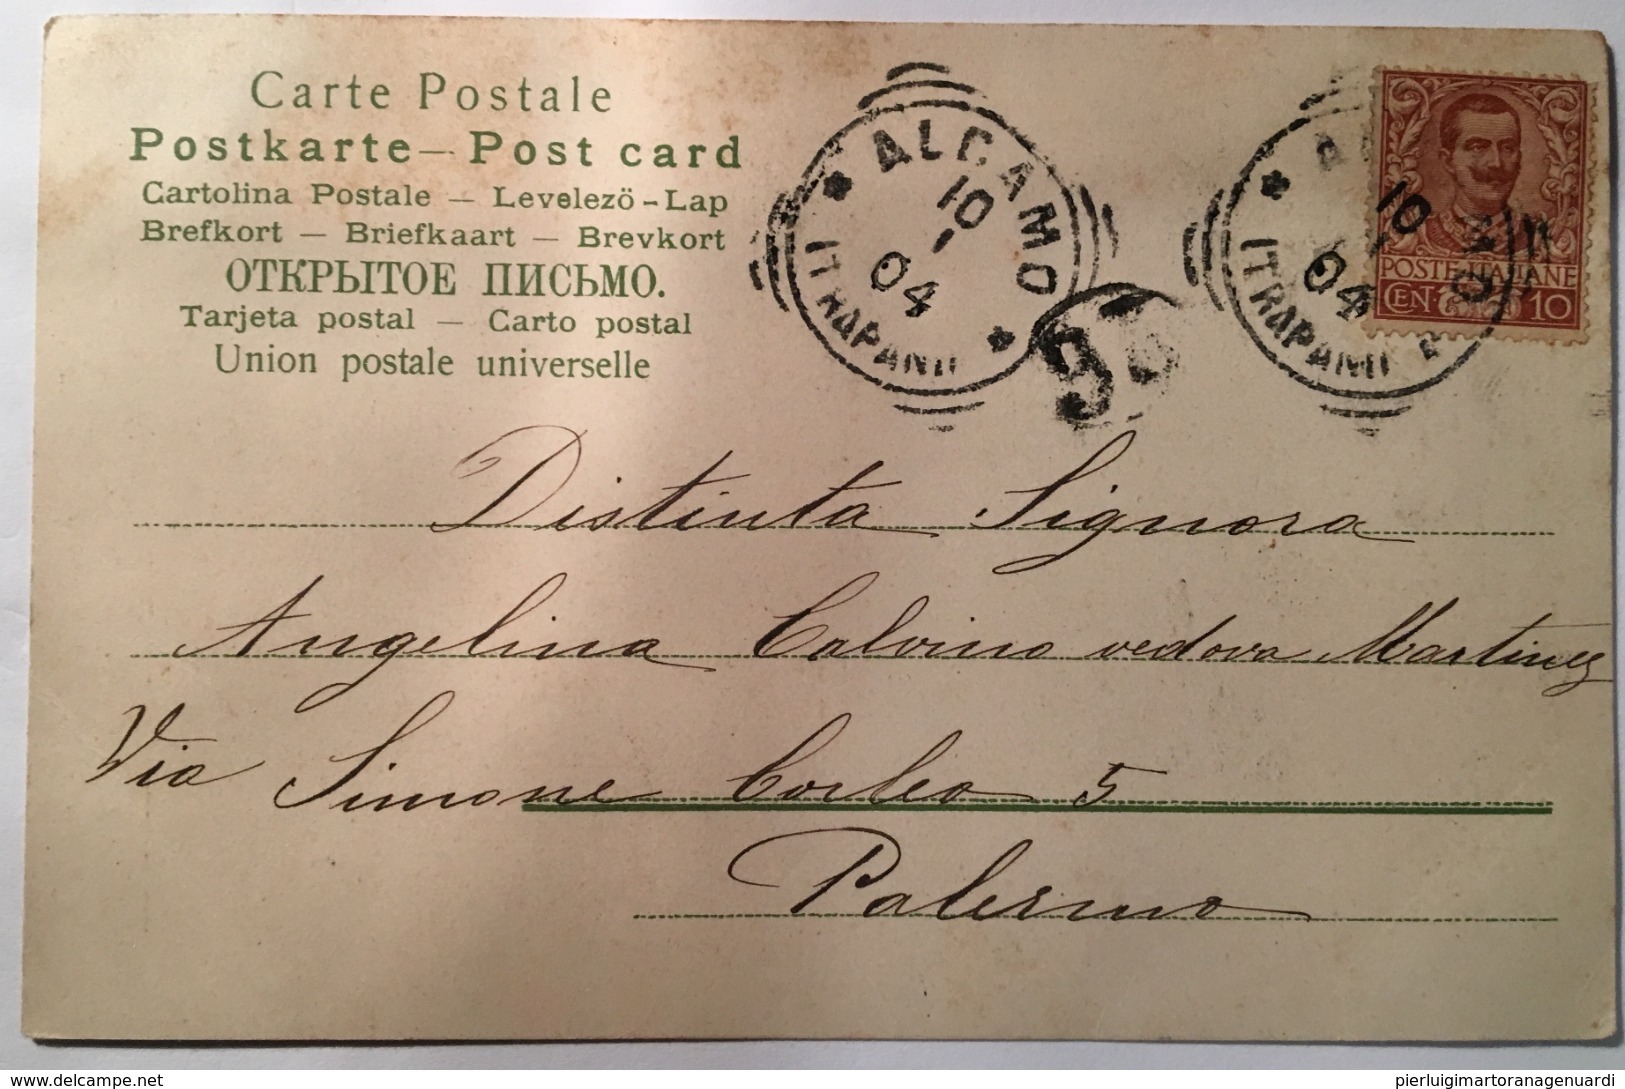 Carte Postale
Postkarte — Post card
Cartolina Postale — Levelező-Lap
Brefkort — Briefkaart — Brevkort
ОТКРЫТОЕ ПИСЬМО.
Tarjeta postal — Carto postal
Union postale universelle
* ALCAMO *
(TRAPANI)
10 - 04
* A MO
(TRAPANI)
10 - 04
POSTE ITALIANE
CEN 10
Distinta Signora
Angelina Calvino vedova Martinez
Via Simone Corleo 5
Palermo
delcampe.net
pierluigimartoranagenuardi